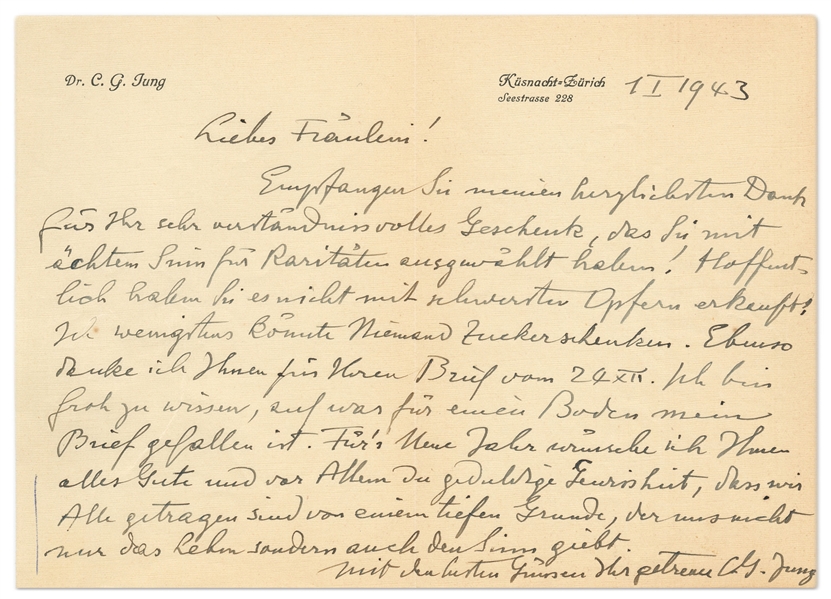 Dr. C. G. Jung
Küsnacht-Zürich 1 I 1943
Seestrasse 228
Liebes Fräulein!
Empfangen Sie meinen herzlichsten Dank
für Ihr sehr verständnissvolles Geschenk, das Sie mit
ächtem Sinn für Raritäten ausgewählt haben! Hoffent-
lich haben Sie es nicht mit schwersten Opfern erkauft!
Ich wenigstens könnte Niemand Zucker schenken. Ebenso
danke ich Ihnen für Ihren Brief vom 24 XII. Ich bin
froh zu wissen, auf was für einen Boden mein
Brief gefallen ist. Für's Neue Jahr wünsche ich Ihnen
alles Gute und vor Allem die geduldige Gewissheit, dass wir
Alle getragen sind von einem tiefen Grunde, der uns nicht
nur das Leben sondern auch den Sinn giebt.
Mit den besten Grüssen Ihr getreuer C.G. Jung